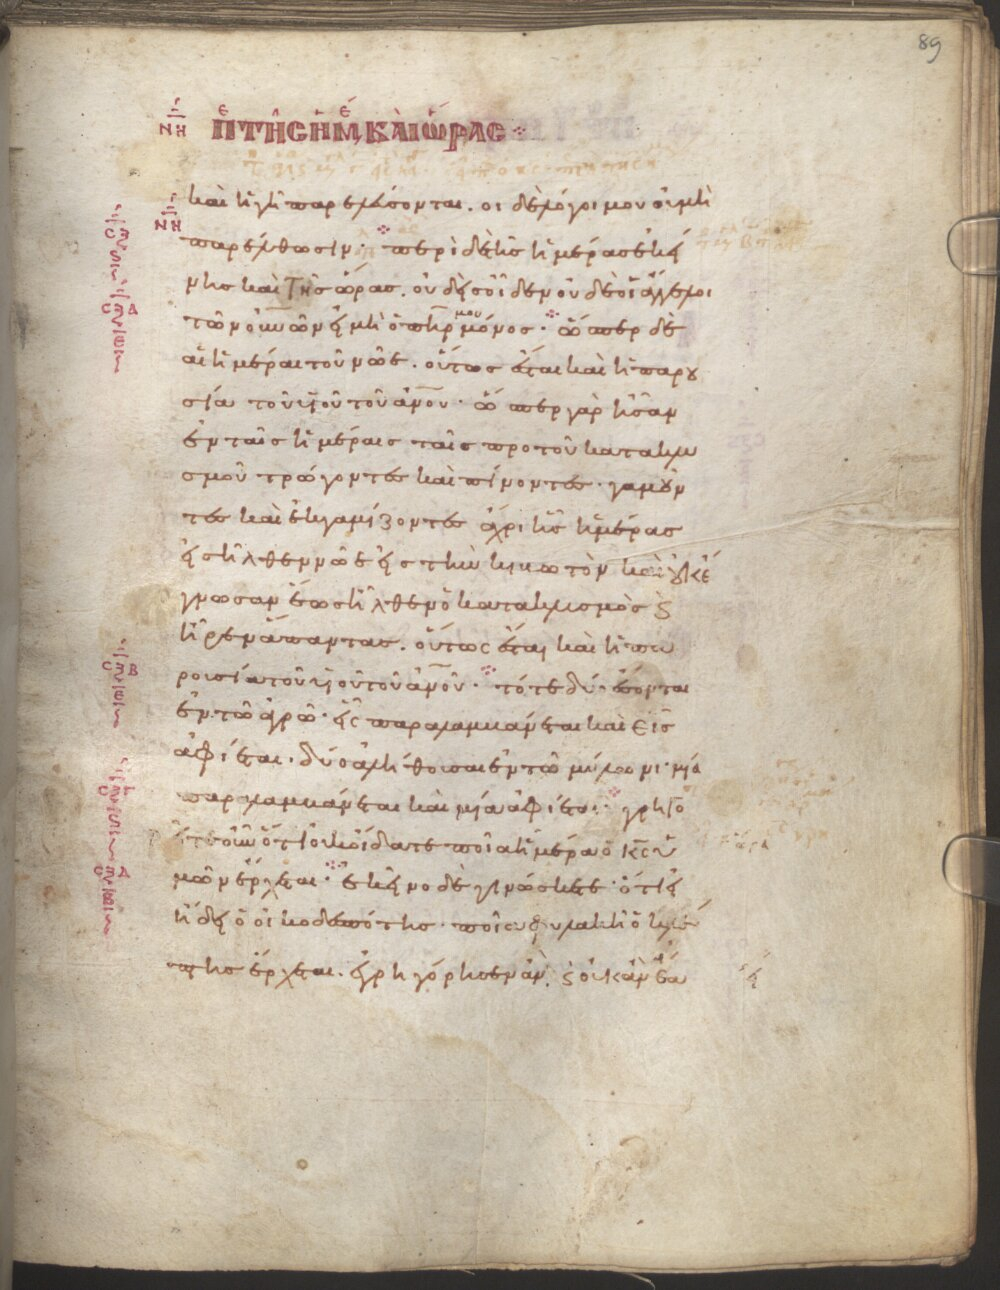 89
ΝΗ πε τῆς ἡμέ καὶ ὥρας
καὶ ἡ γῆ παρελεύσονται. οἱ δὲ λόγοι μου οὐ μὴ
ΝΗ
παρέλθωσιν· περὶ δὲ τῆς ἡμέρας ἐκεί
νης καὶ τῆς ὥρας. οὐδεὶς οἶδεν οὐδὲ οἱ ἄγγελοι
τῶν οὐνῶν εἰ μὴ ὁ πηρ μου μόνος· ὥσπερ δὲ
αἱ ἡμέραι τοῦ νῶε. οὕτως ἔσται καὶ ἡ παρου
σία τοῦ υἱοῦ τοῦ ἀνου· ὥσπερ γὰρ ἦσαν
ἐν ταῖς ἡμέραις ταῖς προ τοῦ κατακλυ
σμοῦ τρώγοντες καὶ πίνοντες· γαμοῦν
τες καὶ ἐκγαμίζοντες ἄχρι ἧς ἡμέρας
εἰσῆλθεν νῶε εἰς τὴν κιβωτὸν καὶ οὐκ ἔ
γνωσαν ἕως ἦλθεν ὁ κατακλυσμὸς ϗ
ἦρεν ἅπαντας. οὕτως ἔσται καὶ ἡ πα
ρουσία τοῦ υἱοῦ τοῦ ἀνου· τότε δύο ἔσονται
ἐν τῶ ἀγρῶ· εἷς παραλαμβάνεται καὶ εἷς
ἀφίεται. δύο ἀλήθουσαι ἐν τῶ μύλωνι· μία
παραλαμβάνεται καὶ μία ἀφίεται· γρηγο
ρεῖτε οὖν ὅτι οὐκ οἴδατε ποία ἡμέρα ὁ κς ὑ
μῶν ἔρχεται· ἐκεῖνο δὲ γινώσκετε· ὅτι εἰ
ἤδει ὁ οἰκοδεσπότης· ποία φυλακῆ ὁ κλέ
πτης ἔρχεται. ἐγρηγόρησεν ἄν. ϗ οὐκ ἂν εἴα